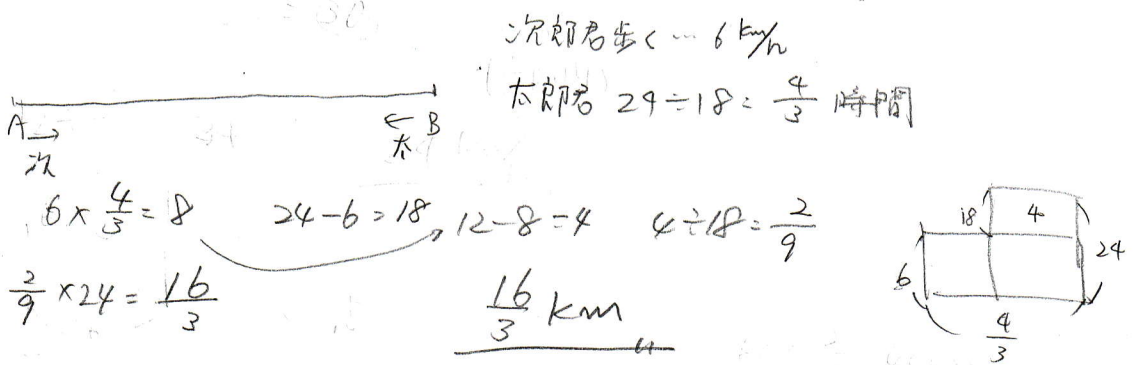 次郎君歩く … 6 km/h
太郎君 24÷18= 4/3 時間
A B
次 太
6 × 4/3 = 8 24-6=18 12-8=4 4÷18= 2/9
2/9 ×24= 16/3
16/3 km
18 4
6 24
4/3